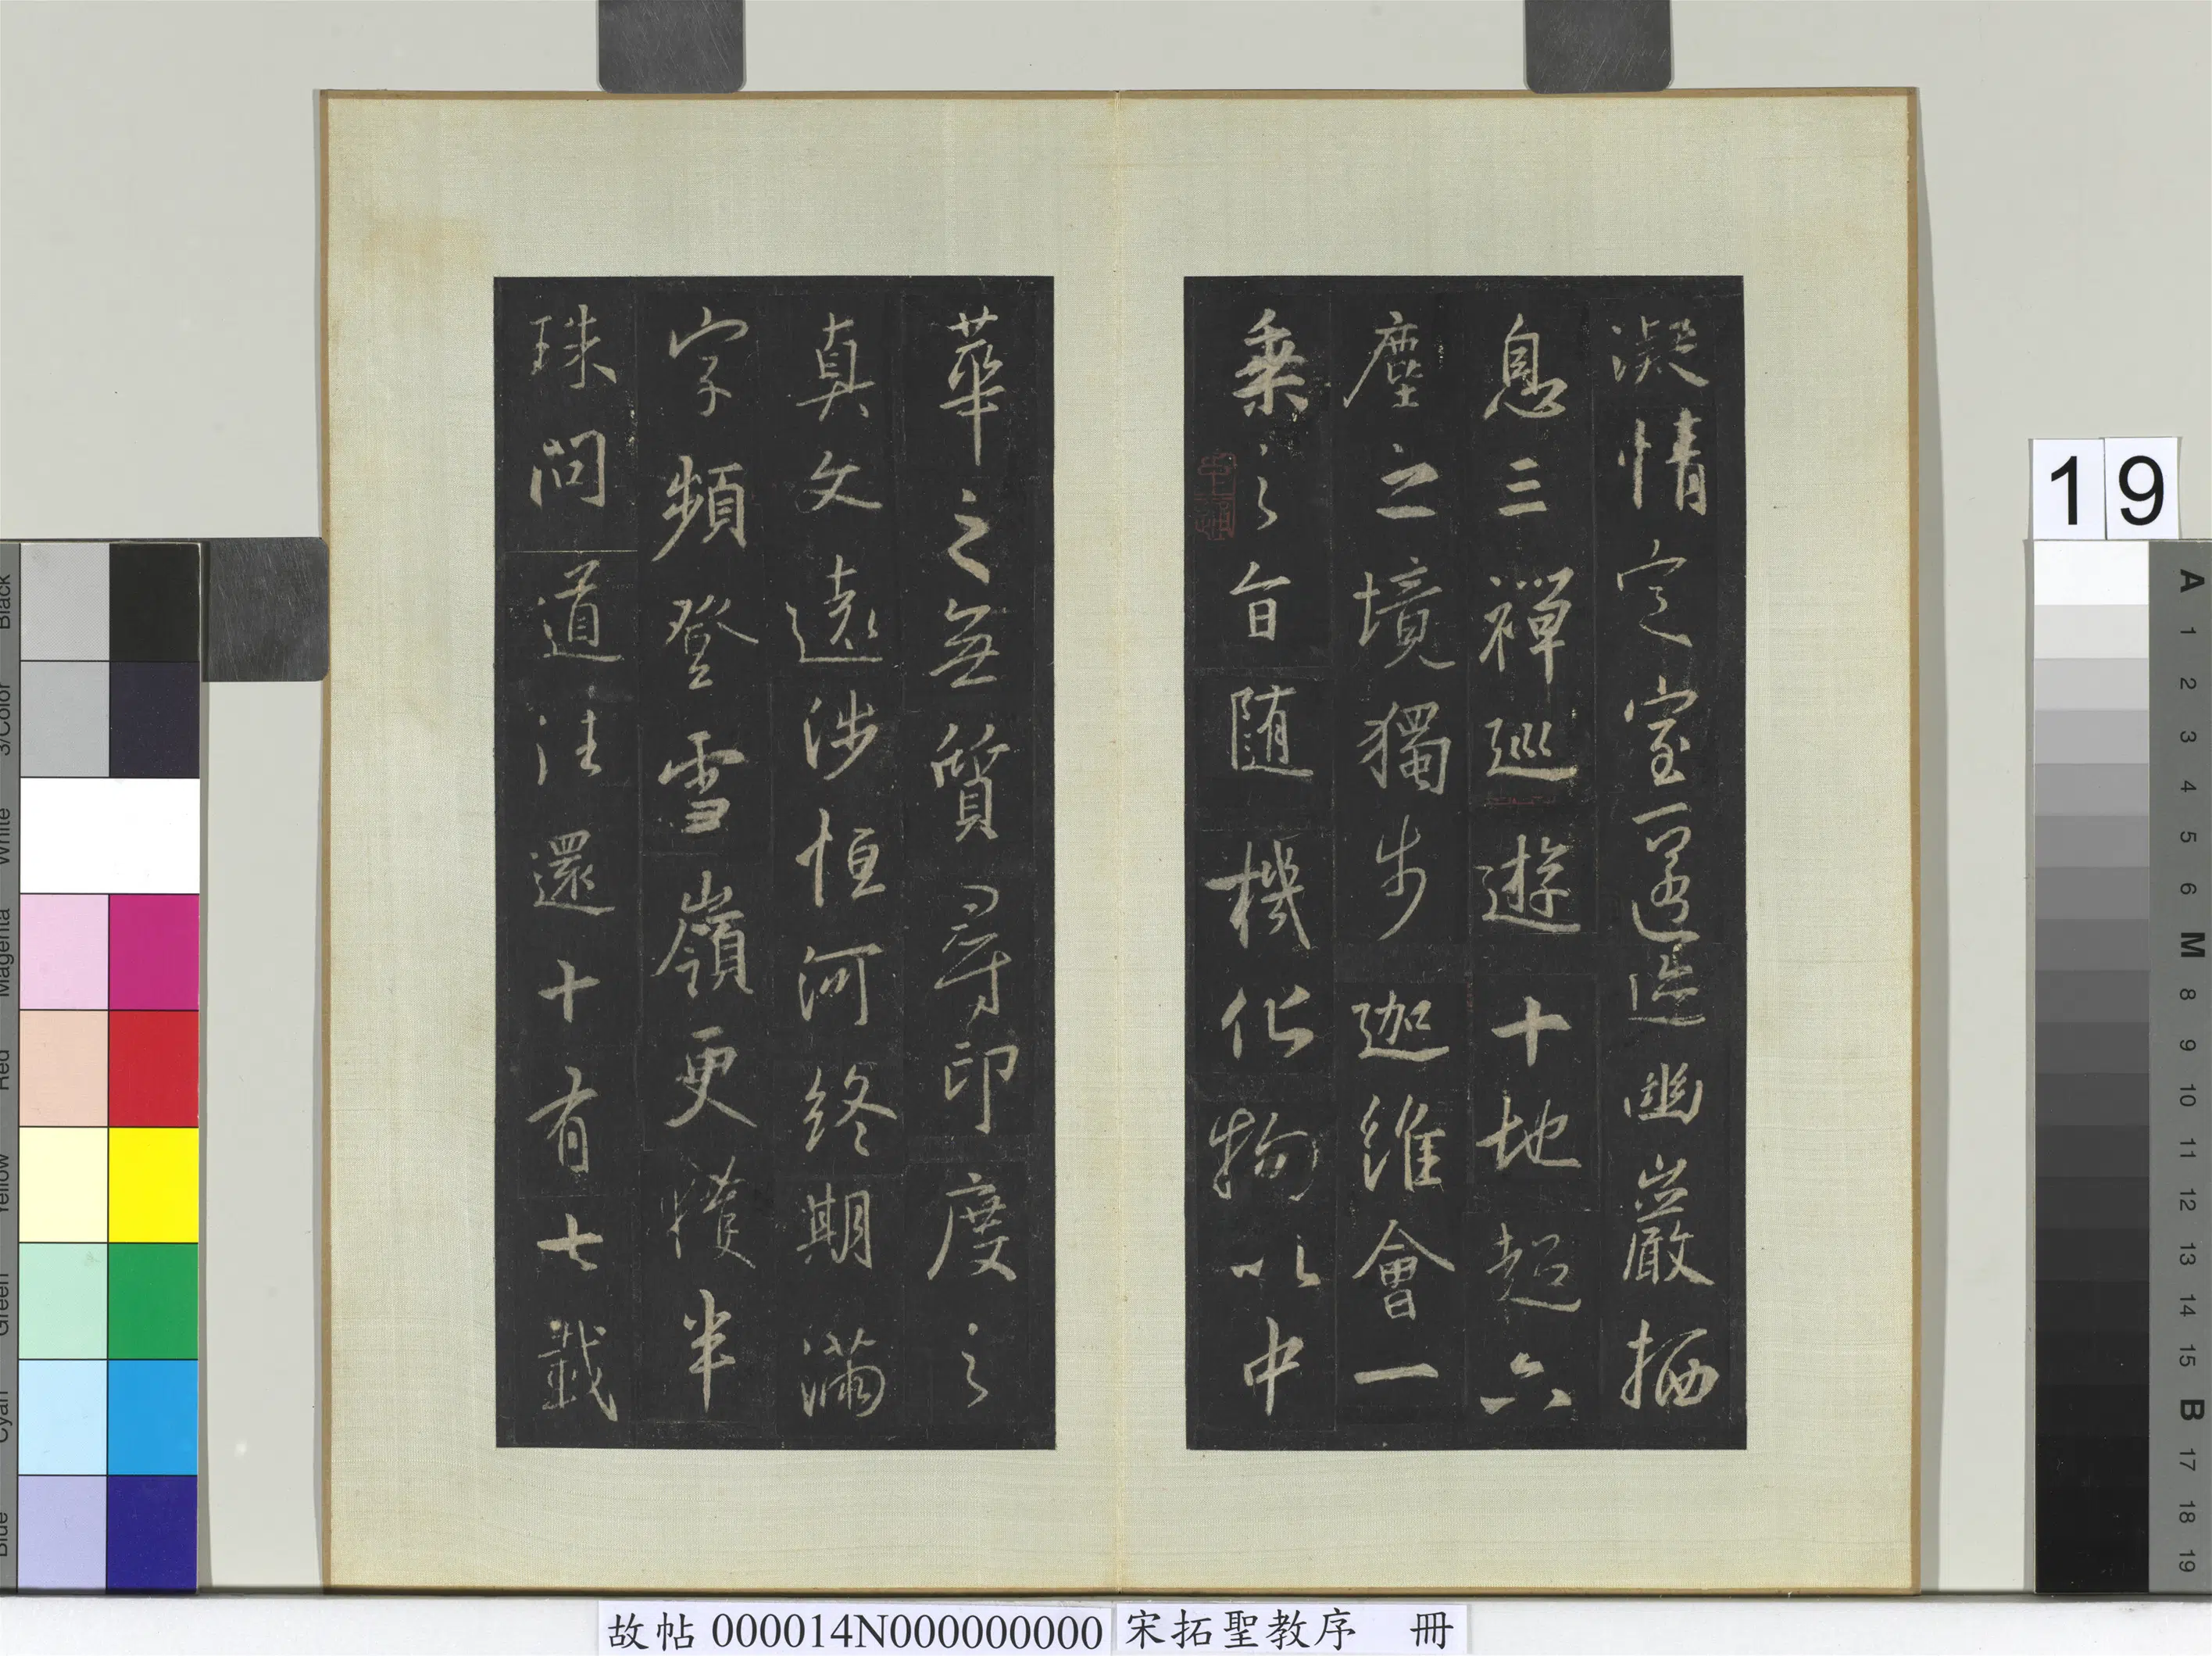 凝情定室匿迹幽巖栖
息三禪巡遊十地超六
塵之境獨步迦維會一
乘之旨隨機化物以中
華之無質尋印度之
真文遠涉恒河終期滿
字頻登雪嶺更獲半
珠問道往還十有七載
19
A 1 2 3 4 5 6 M 8 9 10 11 12 13 14 15 B 17 18 19
Black
3/Color
White
Magenta
Red
Yellow
Green
Cyan
Blue
故帖 000014N000000000 宋拓聖教序 冊